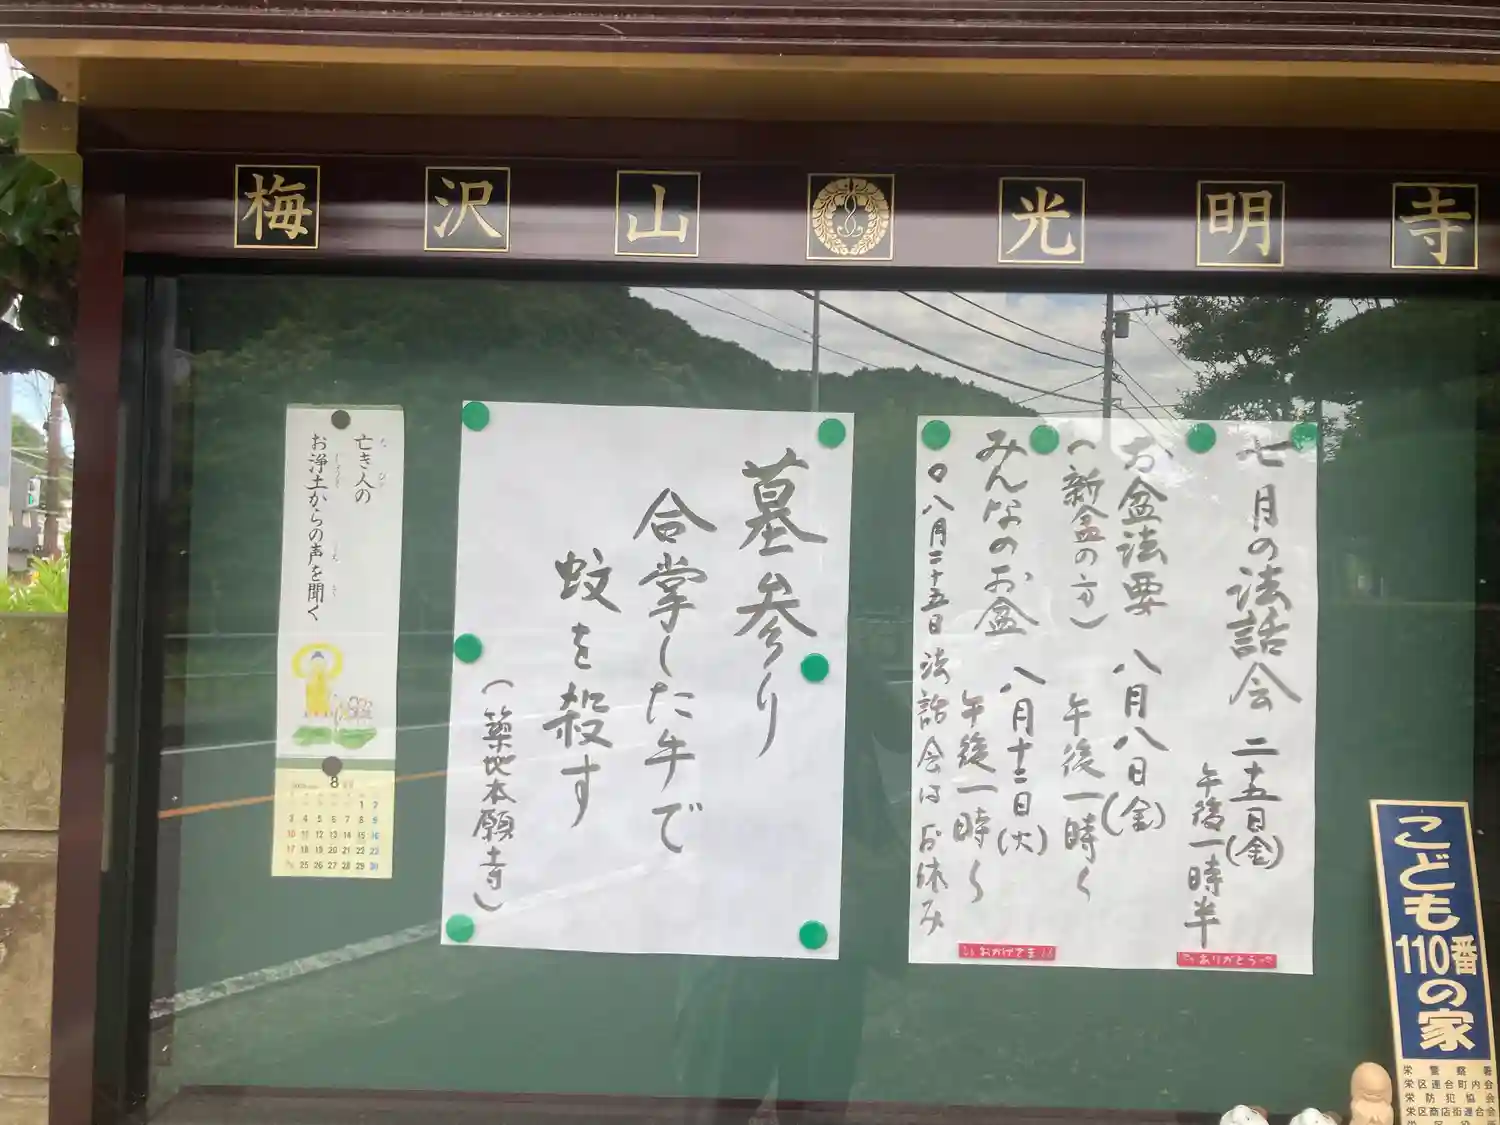 梅沢山 光明寺
七月の法話会 二十五日(金)
午後一時半
お盆法要 八月八日(金)
(新盆の方) 午後一時〜
みんなのお盆 八月十二日(火)
午後一時〜
○八月二十五日 法話会はお休み
ありがとう
おかげさま
墓参り
合掌した手で
蚊を殺す
(築地本願寺)
亡き人の
お浄土からの声を聞く
8
1 2
3 4 5 6 7 8 9
10 11 12 13 14 15 16
17 18 19 20 21 22 23
25 26 27 28 29 30
こども
110番
の家
栄警察署
栄区連合町内会
栄防犯協会
栄区商店街連合会